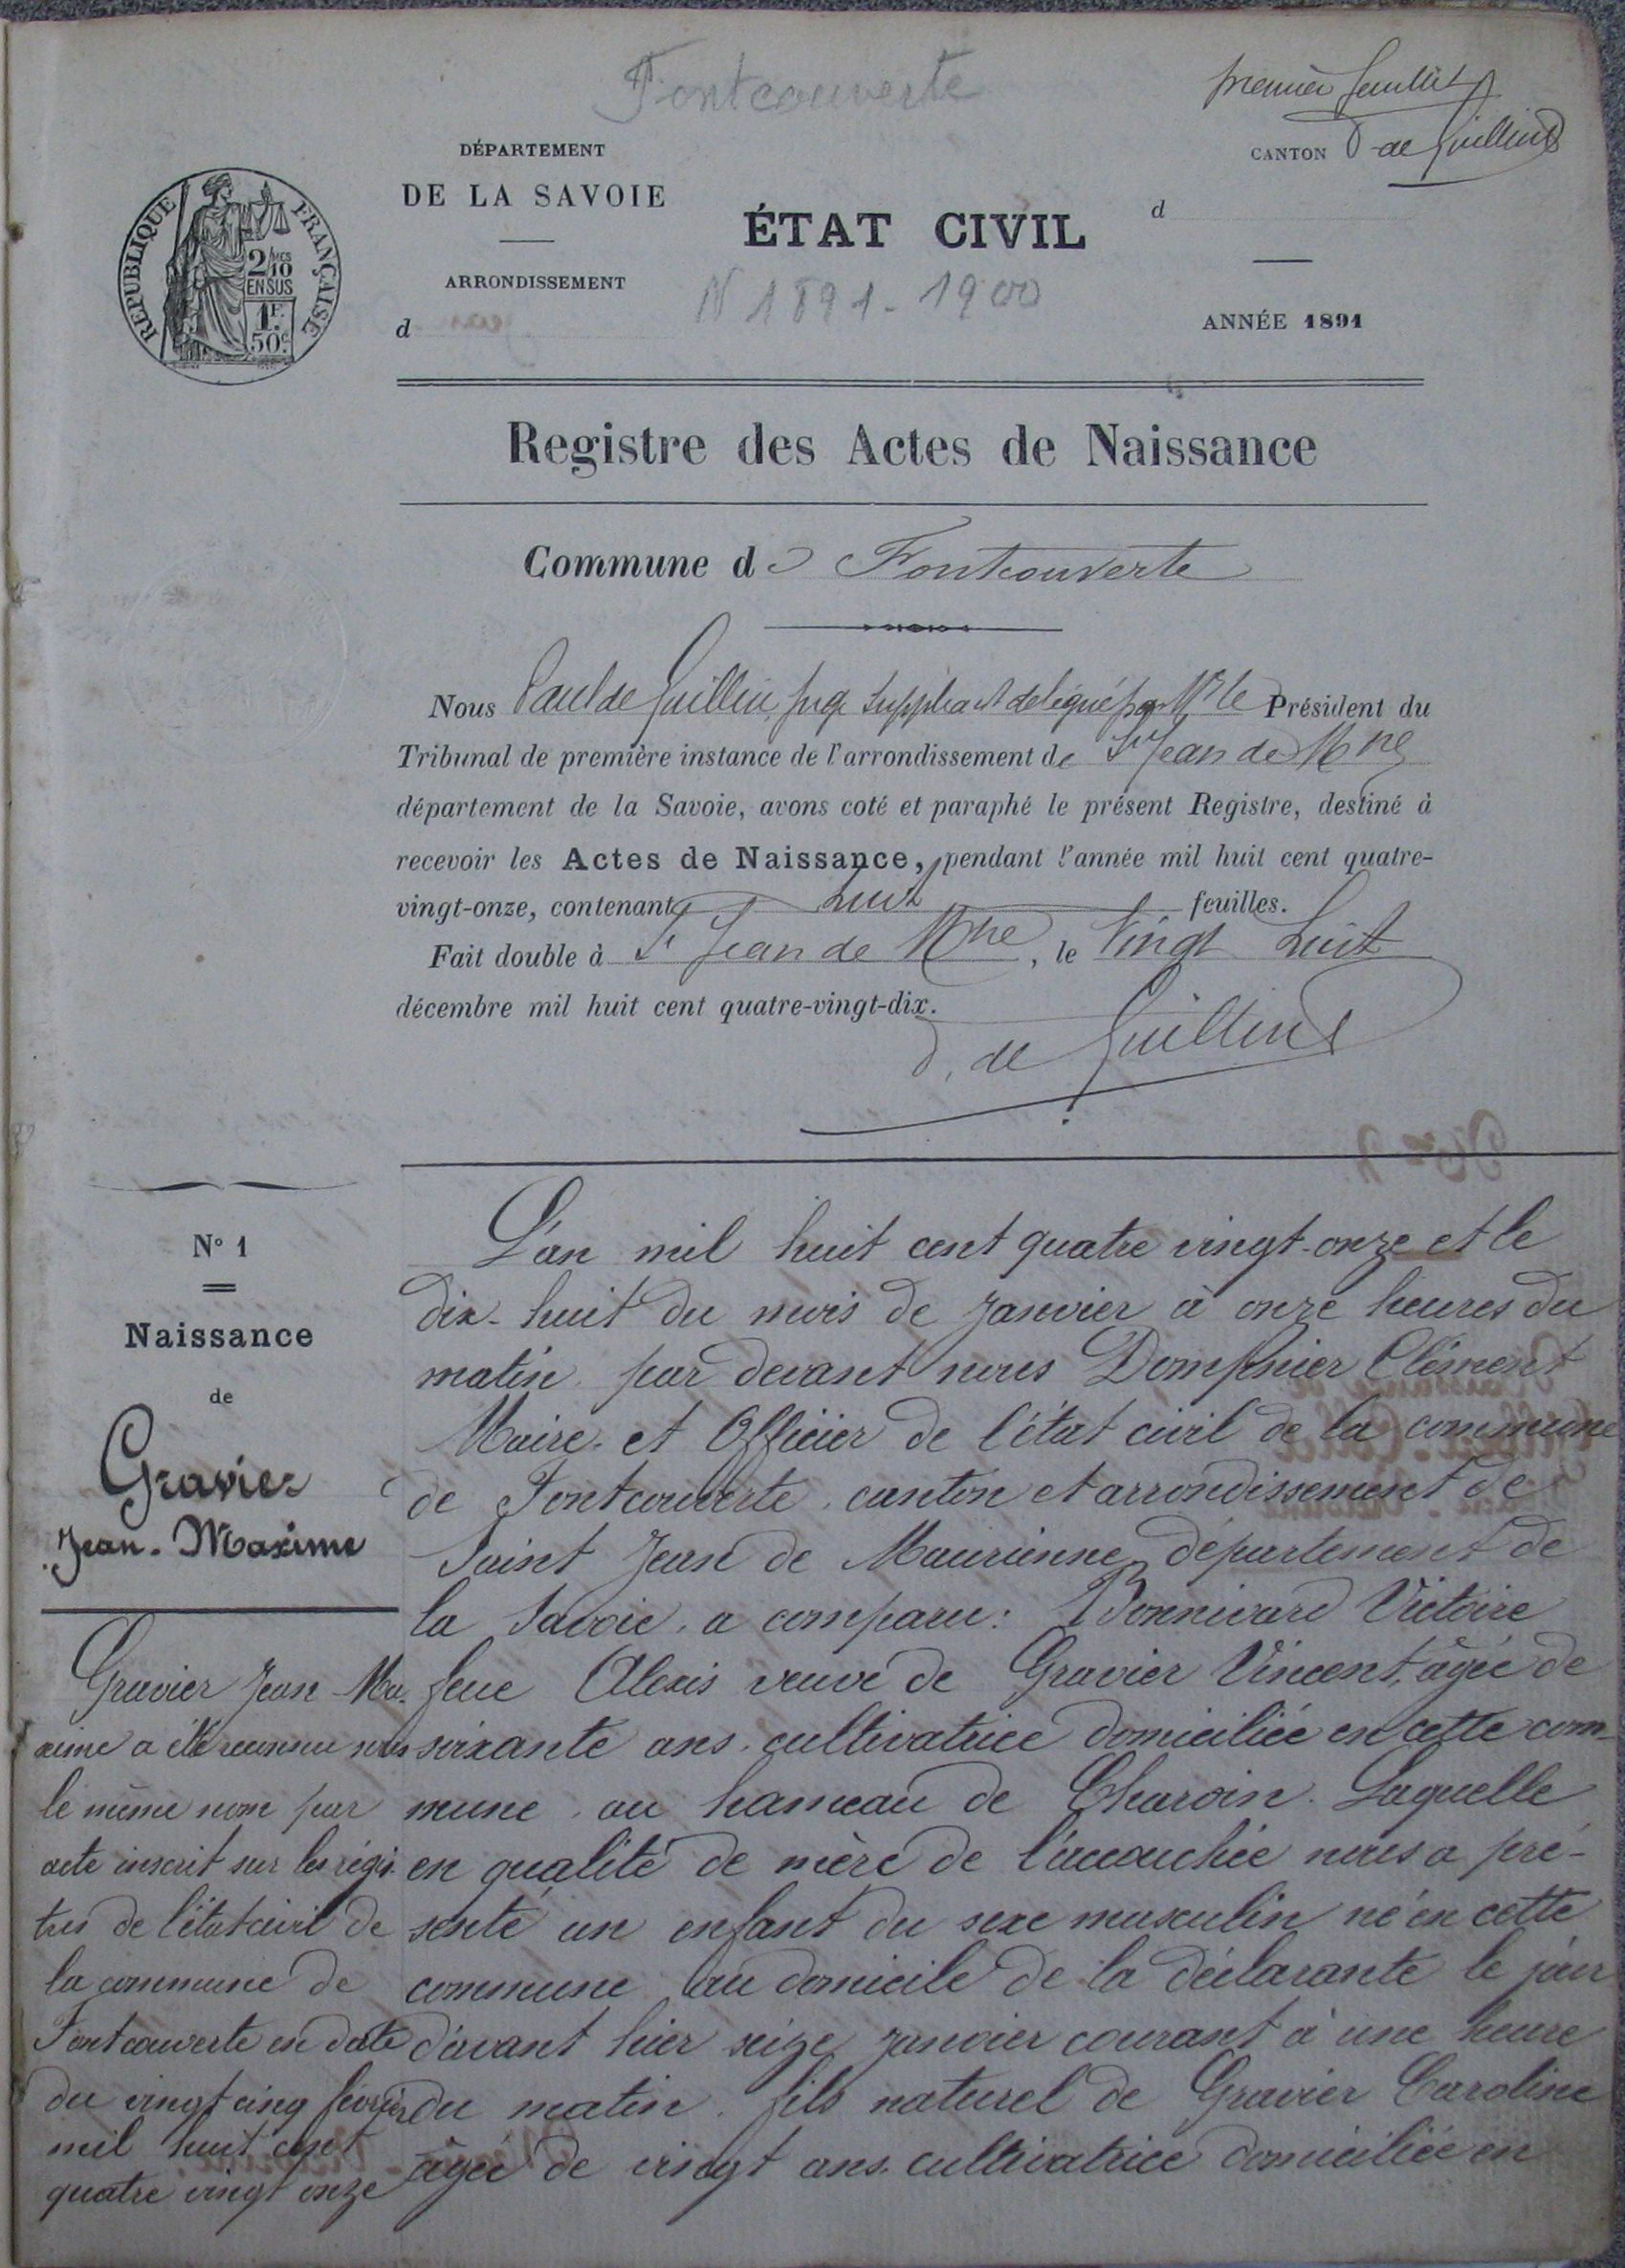 Fontcouverte
premier feuillet
DÉPARTEMENT
DE LA SAVOIE
CANTON
de Guillin
d
ÉTAT CIVIL
RÉPUBLIQUE FRANÇAISE
2/10 MES
EN SUS
1F.
50c.
ARRONDISSEMENT
d
N 1891-1900
ANNÉE 1891
Registre des Actes de Naissance
Commune de Fontcouverte
Nous Paul de Guillin, juge suppléant délégué par Mr le Président du
Tribunal de première instance de l'arrondissement de St Jean de Mne
département de la Savoie, avons coté et paraphé le présent Registre, destiné à
recevoir les Actes de Naissance, pendant l'année mil huit cent quatre-
vingt-onze, contenant huit feuilles.
Fait double à St Jean de Mne, le vingt huit
décembre mil huit cent quatre-vingt-dix.
de Guillin
N° 1
Naissance
de
Gravier
Jean-Maxime
Gravier Jean Ma-
xime a été reconnu sous
le même nom par
acte inscrit sur les régis-
tres de l'état civil de
la commune de
Fontcouverte en date
du vingt cinq février
mil huit cent
quatre vingt onze
L'an mil huit cent quatre vingt-onze et le
dix-huit du mois de Janvier à onze heures du
matin. par devant nous Dompnier Clément
Maire et Officier de l'état civil de la commune
de Fontcouverte, canton et arrondissement de
Saint Jean de Maurienne, département de
la Savoie, a comparu: Bonnivard Victoire
feue Alexis veuve de Gravier Vincent, âgée de
soixante ans, cultivatrice domiciliée en cette com-
mune, au hameau de Charvin. Laquelle
en qualité de mère de l'accouchée nous a pré-
senté un enfant du sexe masculin né en cette
commune au domicile de la déclarante le jour
d'avant hier seize janvier courant à une heure
du matin. fils naturel de Gravier Caroline
âgée de vingt ans, cultivatrice domiciliée en